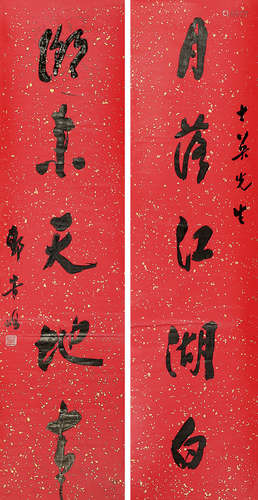 士英先生
月落江湖白
潮来天地青